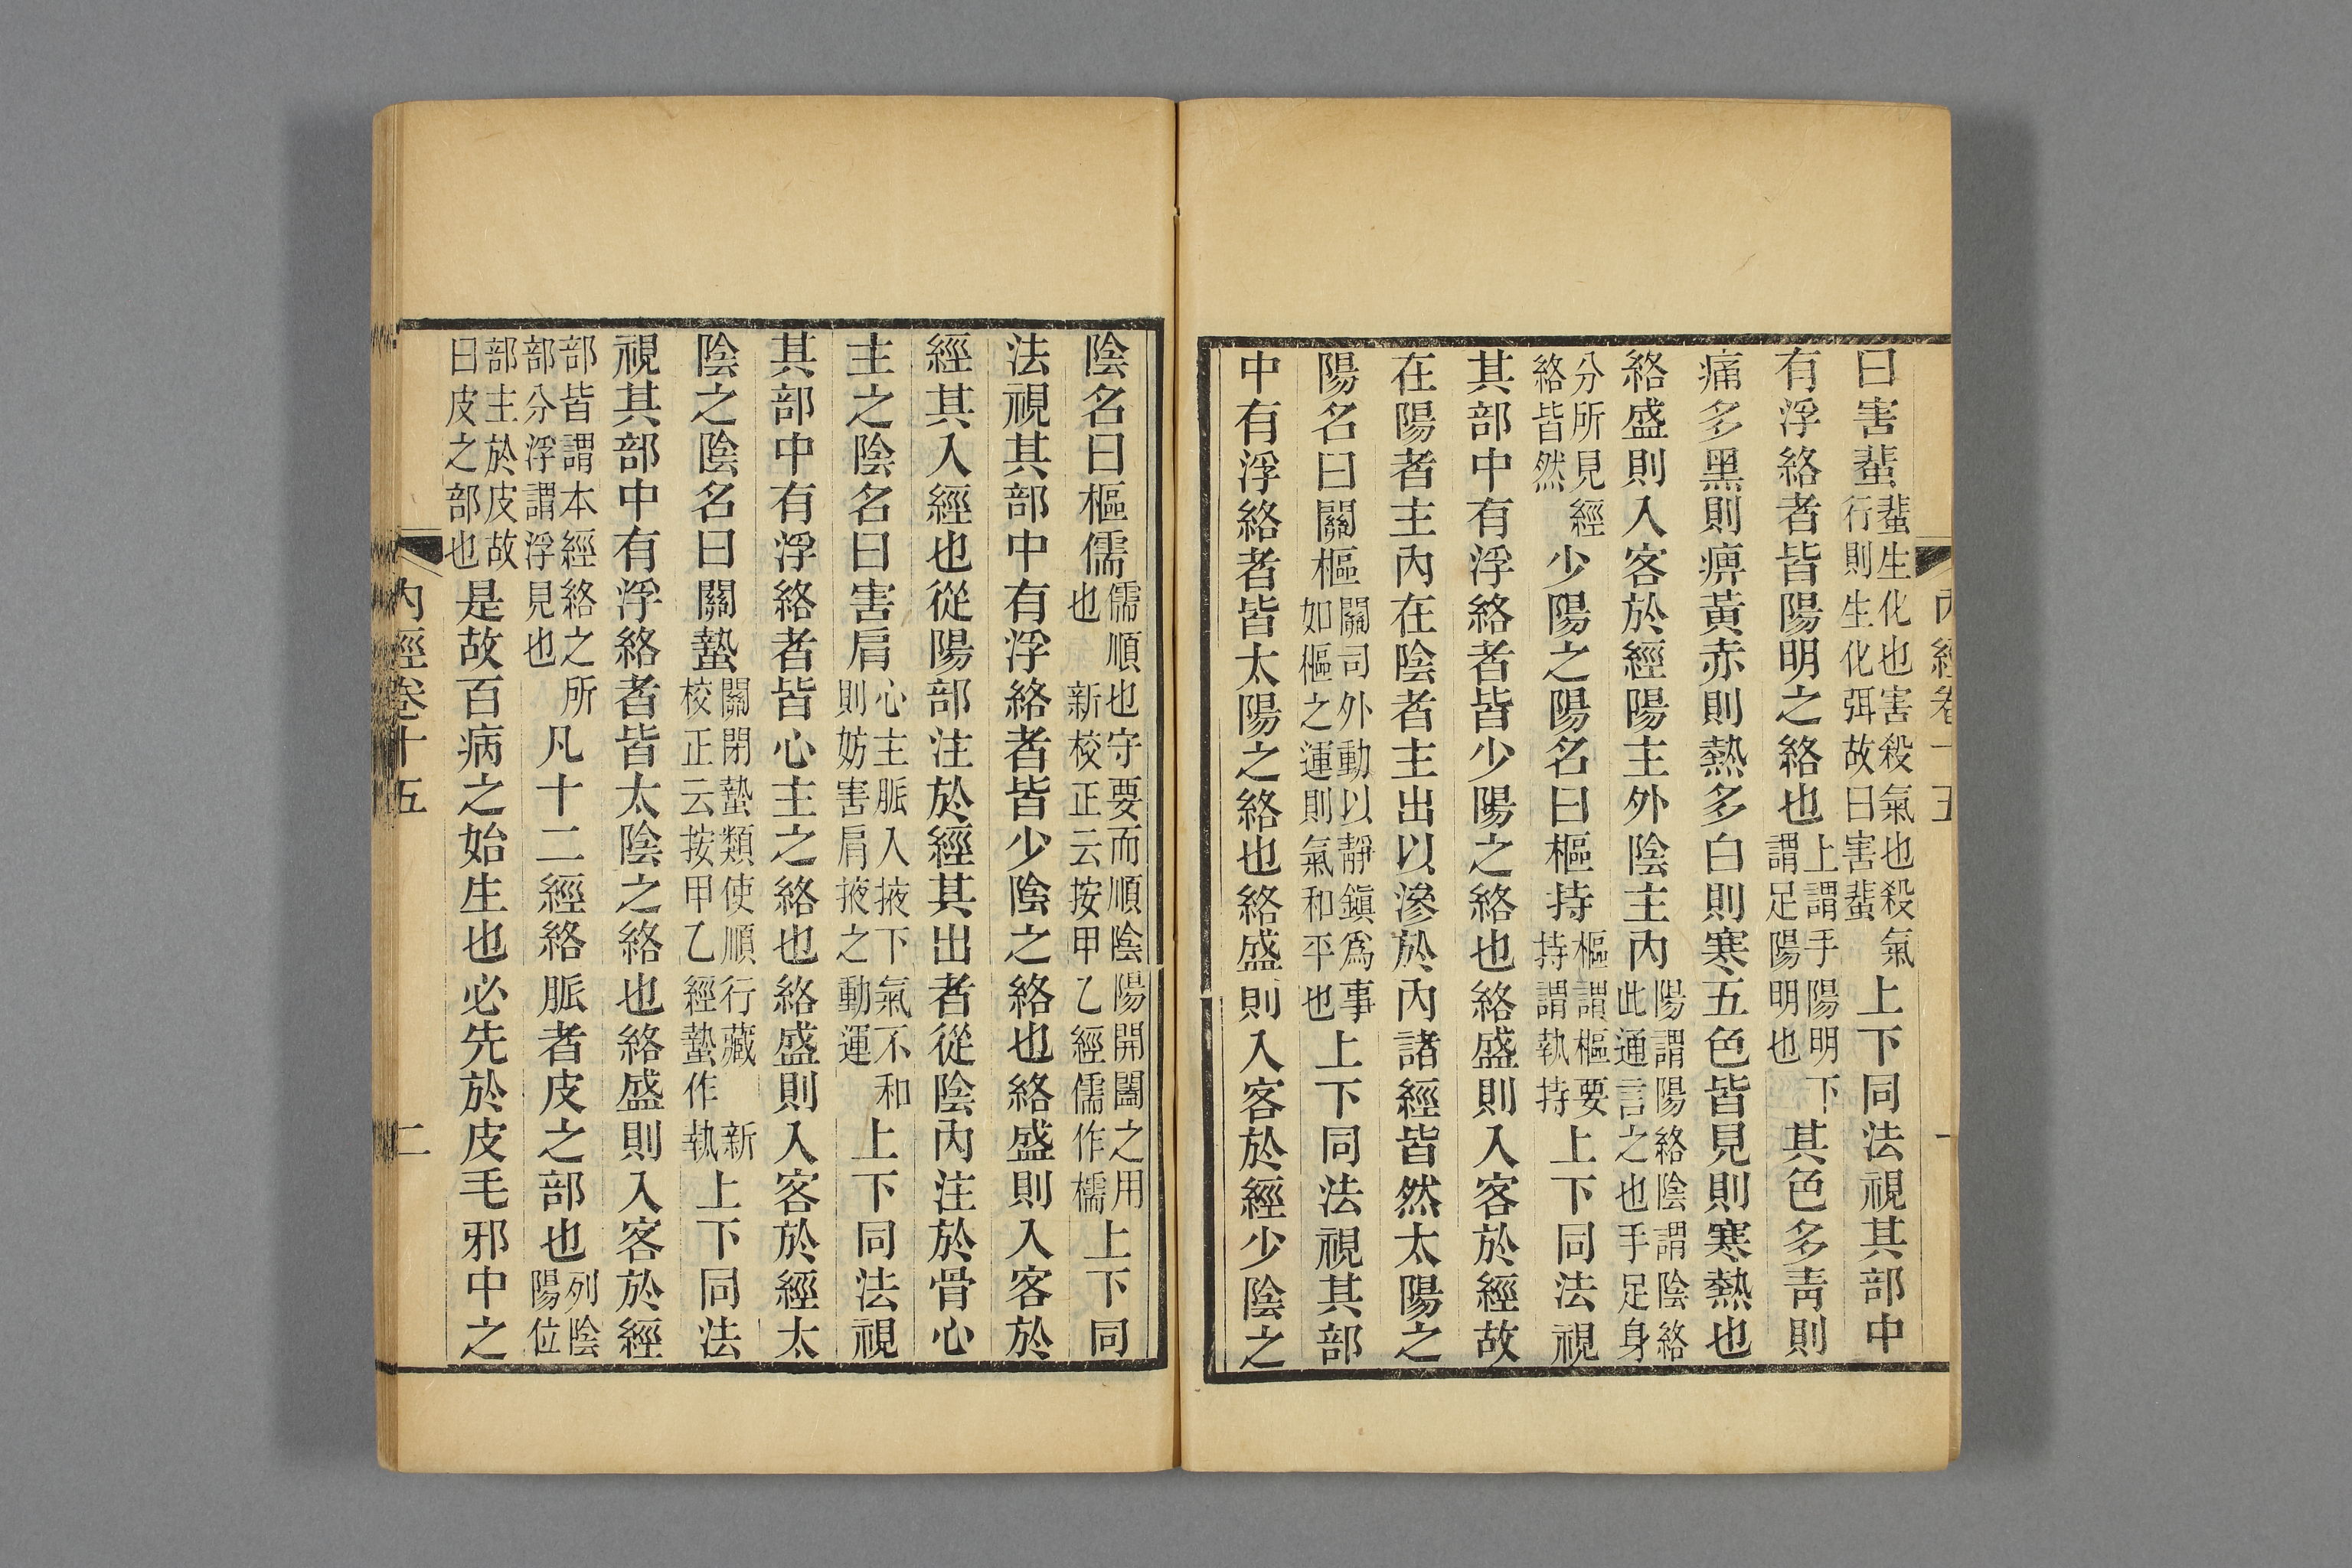 曰害蜚蜚生化也害殺氣也殺氣行則生化弭故曰害蜚上下同法視其部中
有浮絡者皆陽明之絡也上謂手陽明下謂足陽明也其色多青則
痛多黑則痹黃赤則熱多白則寒五色皆見則寒熱也
絡盛則入客於經陽主外陰主內陽謂陽絡陰謂陰絡此通言之也手足身
分所見經絡皆然少陽之陽名曰樞持樞謂樞要持謂執持上下同法視
其部中有浮絡者皆少陽之絡也絡盛則入客於經故
在陽者主內在陰者主出以滲於內諸經皆然太陽之
陽名曰關樞關司外動以靜鎮為事如樞之運則氣和平也上下同法視其部
中有浮絡者皆太陽之絡也絡盛則入客於經少陰之
陰名曰樞儒儒順也守要而順陰陽開闔之用也新校正云按甲乙經儒作檽上下同
法視其部中有浮絡者皆少陰之絡也絡盛則入客於
經其入經也從陽部注於經其出者從陰內注於骨心
主之陰名曰害肩心主脈入掖下氣不和則妨害肩掖之動運上下同法視
其部中有浮絡者皆心主之絡也絡盛則入客於經太
陰之陰名曰關蟄關閉蟄類使順行藏新校正云按甲乙經蟄作執上下同法
視其部中有浮絡者皆太陰之絡也絡盛則入客於經
部皆謂本經絡之所部分浮謂浮見也凡十二經絡脈者皮之部也列陰陽位
部主於皮故曰皮之部也是故百病之始生也必先於皮毛邪中之
內經卷十五 二